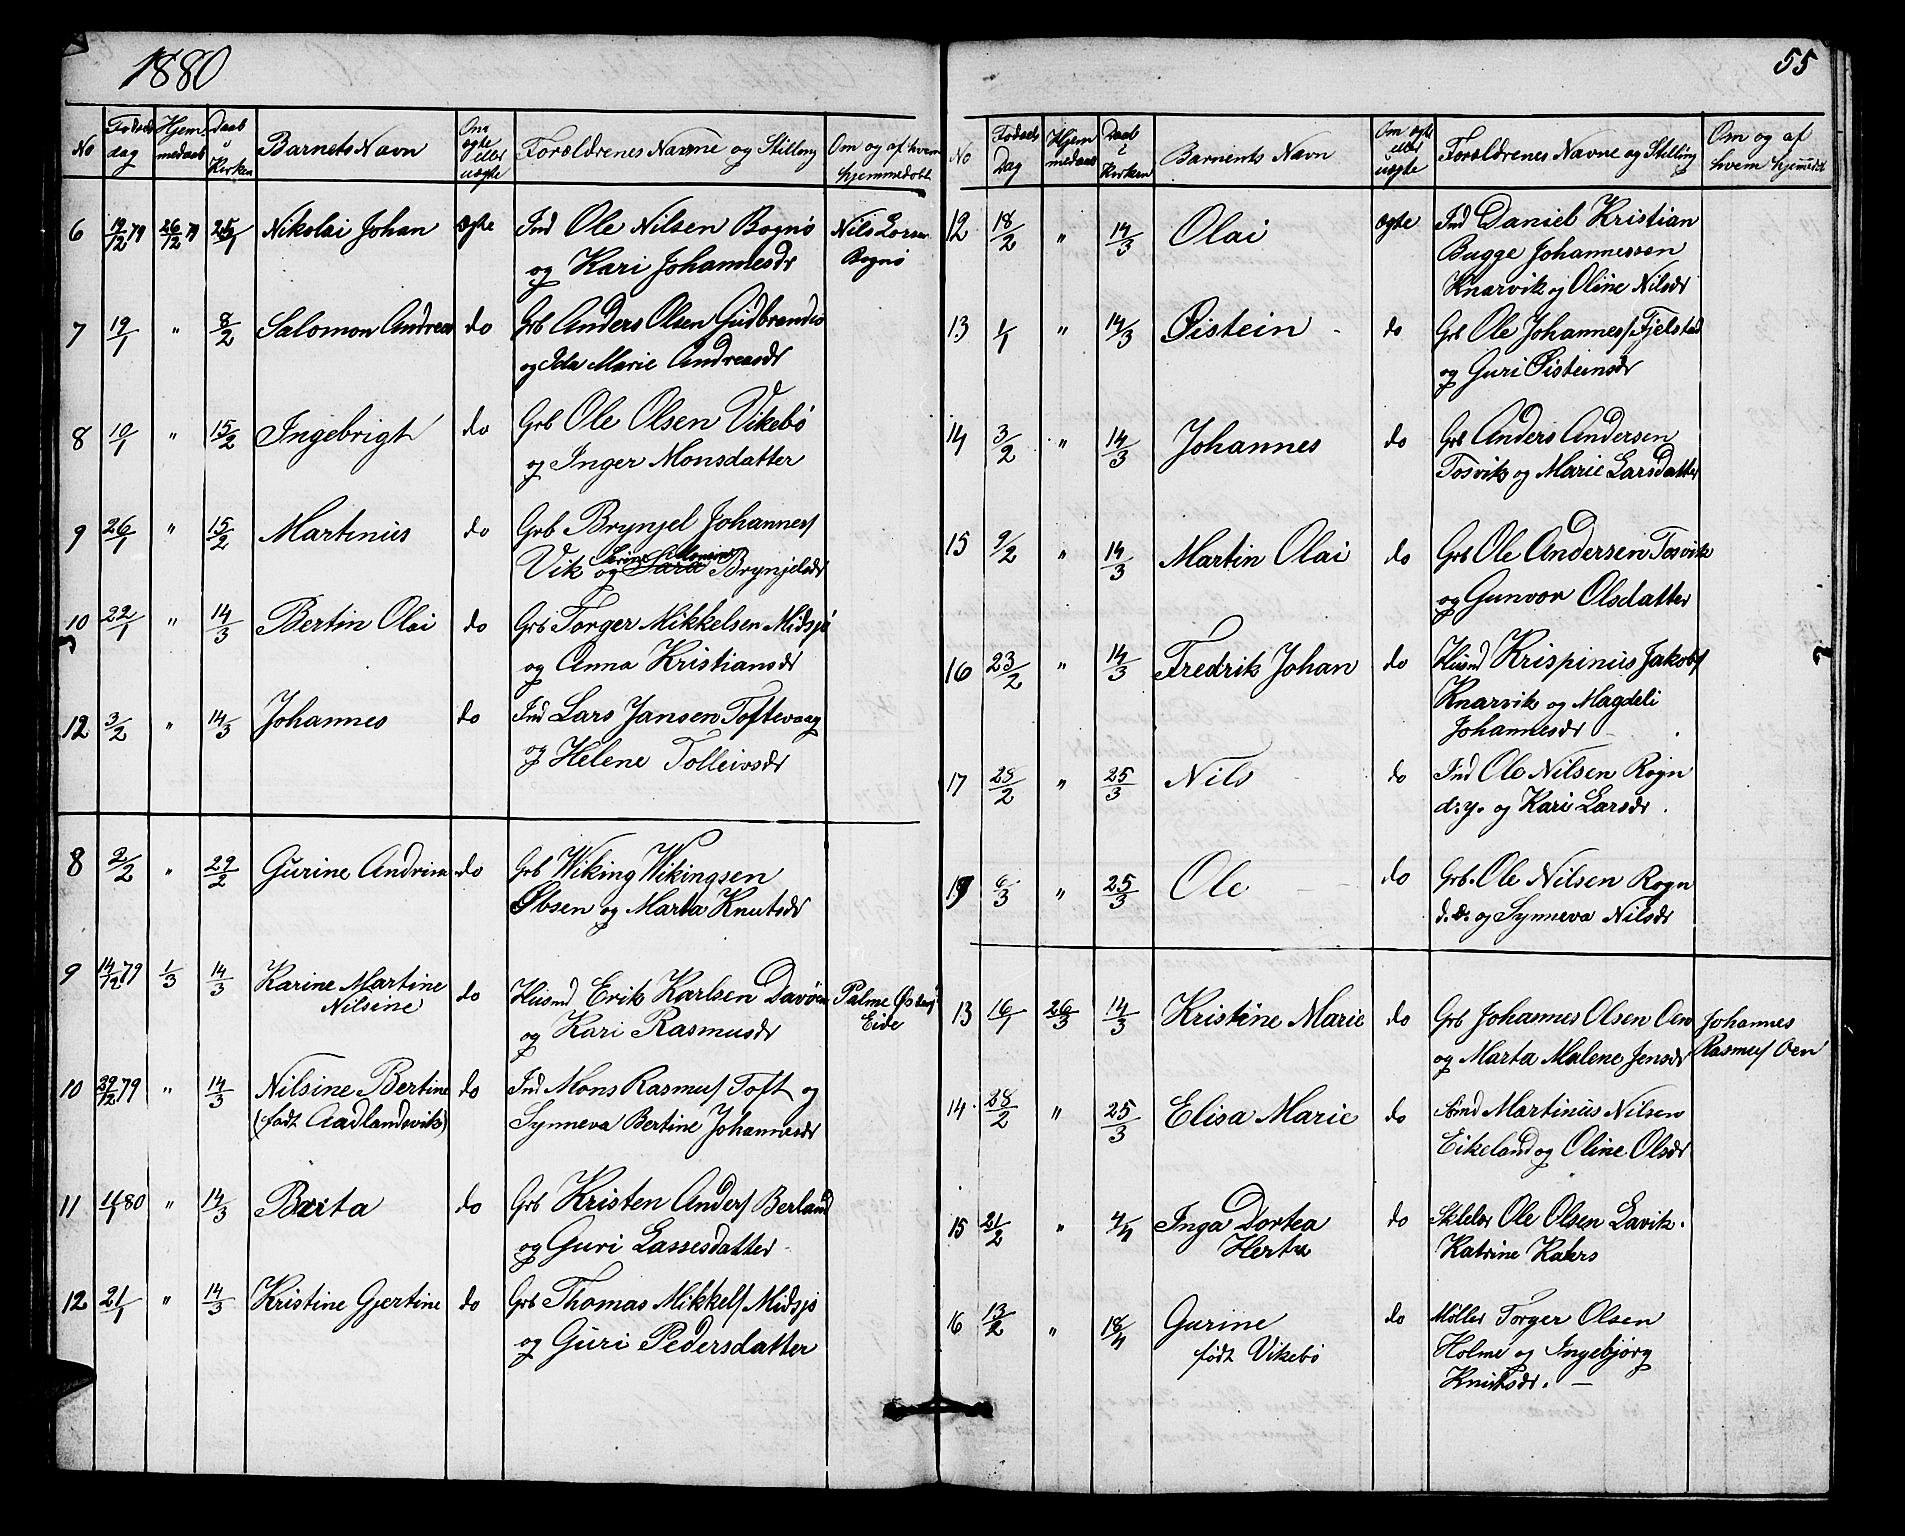 1880
No Fødsels dag Hjem medaab Daab i Kirken Barnets Navn Om ægte eller uægte Forældrenes Navne og Stilling Om og af hvem hjemmedøbt
6 19/12 79 26/12 79 25/1 Nikolai Johan ægte Ind Ole Nilsen Bognø Nils Lorn
og Kari Johannesdr Bognø
7 19/1 " 8/2 Salomon Andreas do Grb Anders Olsen
og Ida Marie Andreasdr
8 10/1 " 15/2 Ingebrigt do Grb Ole Olsen Vikebø
og Inger Monsdatter
9 26/1 " 15/2 Martinus do Grb Brynjel Johannes/
Vik og Brynjelsdr
10 22/1 " 14/3 Bertin Olai do Grb Torger Mikkelsen Midsjø
og Anna Kristiansdr
12 3/2 " 14/3 Johannes do Ind Lars Jansen Toftevaag
og Helene Tolleivsdr
8 2/2 " 29/2 Gurine Andrina do Grb Wiking Wikingsen
og Marta Knutsdr
9 14/12 79 1/3 14/3 Karine Martine do Husmd Erik Karlsen Davøen Palme
Nilsine og Kari Rasmusdr Eide
10 29/12 79 " 14/3 Nilsine Bertine do Ind Mons Rasmus/ Toft og
(født Aadlandsvik) Synneva Bertine Johannesdr
11 80 " 14/3 Berta do Grb Kristen Anders/ Berland
og Guri Lassesdatter
12 21/1 " 14/3 Kristine Gjertine do Grb Thomas Mikkels/ Midsjø
og Guri Pedersdatter
55
No Fødsels Dag Hjem medaab Daab i Kirken Barnents Navn Om ægte eller uægte Forældrenes Navne og Stilling Om og af hvem hjemmedøbt
12 18/2 " 14/3 Olai ægte Ind Daniel Kristian
Bugge Johannessen
Knarvik og Oline Nilsdr
13 1/1 " 14/3 Øistein do Grb Ole Johannes/ Fjelstad
og Guri Øisteinsdr
14 3/2 " 14/3 Johannes do Grb Anders Andersen
Tosvik og Marie Larsdatter
15 9/2 " 14/3 Martin Olai do Grb Ole Andersen Tosvik
og Gunvor Olsdatter
16 23/2 " 14/3 Fredrik Johan do Husmd Krispinus Jakobs/
Knarvik og Magdeli
Johannesdr
17 28/2 " 25/3 Nils do Ind Ole Nilsen Rogn
d.y. og Kari Larsdr
6/3 " 25/3 Ole do Grb. Ole Nilsen Rogn
d.æ. og Synneva Nilsdr
13 16/1 26/3 14/3 Kristine Marie do Grb Johannes Olsen Oen Johannes
og Marta Malene Jensdr Rasmus/ Oen
14 28/2 " 25/3 Elisa Marie do Martinus Nilsen
Eikeland og Oline Olsdr
15 21/2 " 4/4 Inga Dortea do Ole Olsen Lavik.
Herta Katrine
16 13/2 " 18/4 Gurine do Møller Torger Olsen
født Vikebø Holme og Ingebjørg
Knutsdr.